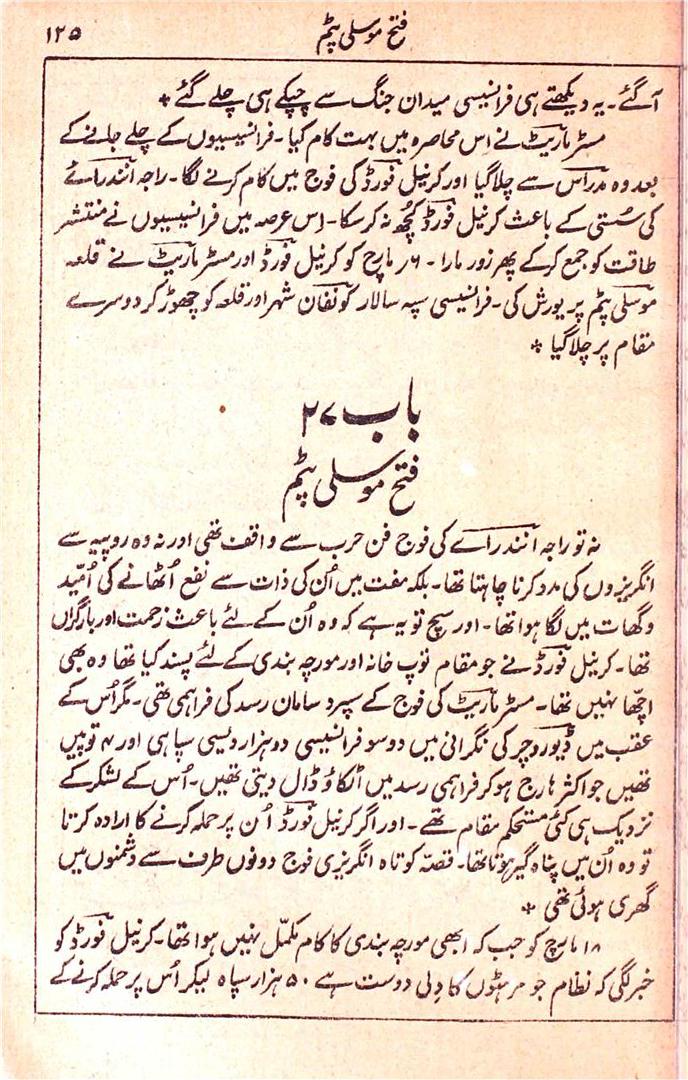 فتح موسلی پٹم ۱۲۵
آگئے۔ یہ دیکھتے ہی فرانسیسی میدان جنگ سے چپکے ہی چلے گئے *
مسٹر ماریٹ نے اس محاصرہ میں بہت کام کیا۔ فرانسیسیوں کے چلے جانے کے
بعد وہ مدراس سے چلا گیا اور کرنیل فورڈ کی فوج میں کام کرنے لگا۔ راجہ انندرائے
کی سُستی کے باعث کرنیل فورڈ کچھ نہ کرسکا۔ اِس عرصہ میں فرانسیسیوں نے منتشر
طاقت کو جمع کرکے پھر زور مارا۔ ۶ر مارچ کو کرنیل فورڈ اور مسٹر ماریٹ نے قلعہ
موسلی پٹم پر یورش کی۔ فرانسیسی سپہ سالار کونفان شہر اور قلعہ کو چھوڑ کر دوسرے
مقام پر چلا گیا *
باب ۲۷
فتح موسلی پٹم
نہ تو راجہ انندرائے کی فوج فن حرب سے واقف تھی اور نہ وہ روپیہ سے
انگریزوں کی مدد کرنا چاہتا تھا۔ بلکہ مفت میں اُن کی ذات سے نفع اُٹھانے کی اُمّید
وگھات میں لگا ہوا تھا۔ اور سچ تو یہ ہے کہ وہ اُن کے لئے باعث زحمت اور بارگراں
تھا۔ کرنیل فورڈ نے جو مقام توپ خانہ اور مورچہ بندی کے لئے پسند کیا تھا وہ بھی
اچّھا نہیں تھا۔ مسٹر ماریٹ کی فوج کے سپرد سامان رسد کی فراہمی تھی۔ مگر اُس کے
عقب میں ڈیوروچر کی نگرانی میں دوسو فرانسیسی دو ہزار دیسی سپاہی اور ۴ توپیں
تھیں جو اکثر ہارج ہوکر فراہمی رسد میں اٹکاؤ ڈال دیتی تھیں۔ اُس کے لشکر کے
نزدیک ہی کئی مستحکم مقام تھے۔ اور اگر کرنیل فورڈ اُن پر حملہ کرنے کا ارادہ کرتا
تو وہ اُن میں پناہ گیر ہوتا تھا۔ قصّہ کوتاہ انگریزی فوج دونوں طرف سے دشمنوں میں
گھری ہوئی تھی *
۱۸ مارچ کو جب کہ ابھی مورچہ بندی کا کام مکمّل نہیں ہوا تھا۔ کرنیل فورڈ کو
خبر لگی کہ نظام جو مرہٹوں کا دلی دوست ہے ۵۰ ہزار سپاہ لیکر اُس پر حملہ کرنے کے